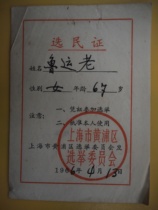 选民证
姓名 鲁运老
性别 女 年龄 67岁
注意:
一、凭证参加选举
二、只准本人使用
上海市黄浦区选举委员会发
上海市黄浦区
选举委员会
1966年4月13日